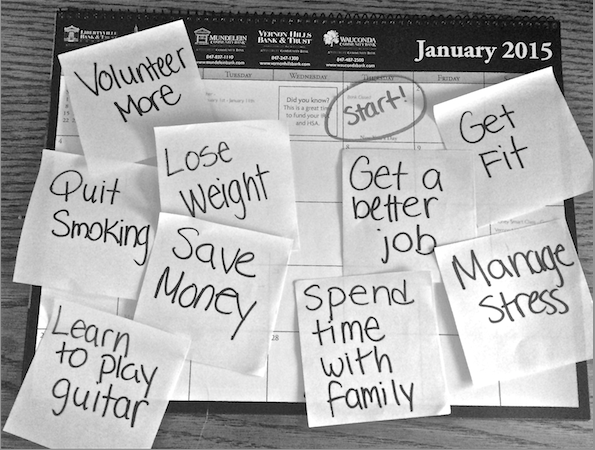 LIBERTYVILLE
BANK & TRUST
MUNDELEIN
COMMUNITY BANK
847-837-1110
mundeleinbank.com
VERNON HILLS
BANK & TRUST
847-247-1300
vernonhillsbank.com
WAUCONDA
COMMUNITY BANK
847-487-2500
waucondabank.com
January 2015
TUESDAY
WEDNESDAY
THURSDAY
FRIDAY
Did you know?
This is a great time
to fund your IRA
and HSA.
Start!
Volunteer
More
Lose
Weight
Get
Fit
Quit
Smoking
Get a
better
job
Save
Money
Manage
stress
Learn
to play
guitar
Spend
time
with
family
28